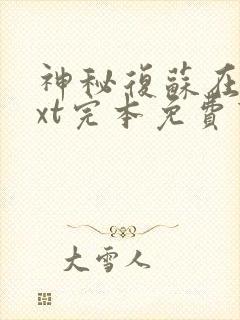 神秘復蘇在
xt完本免費
大雪人